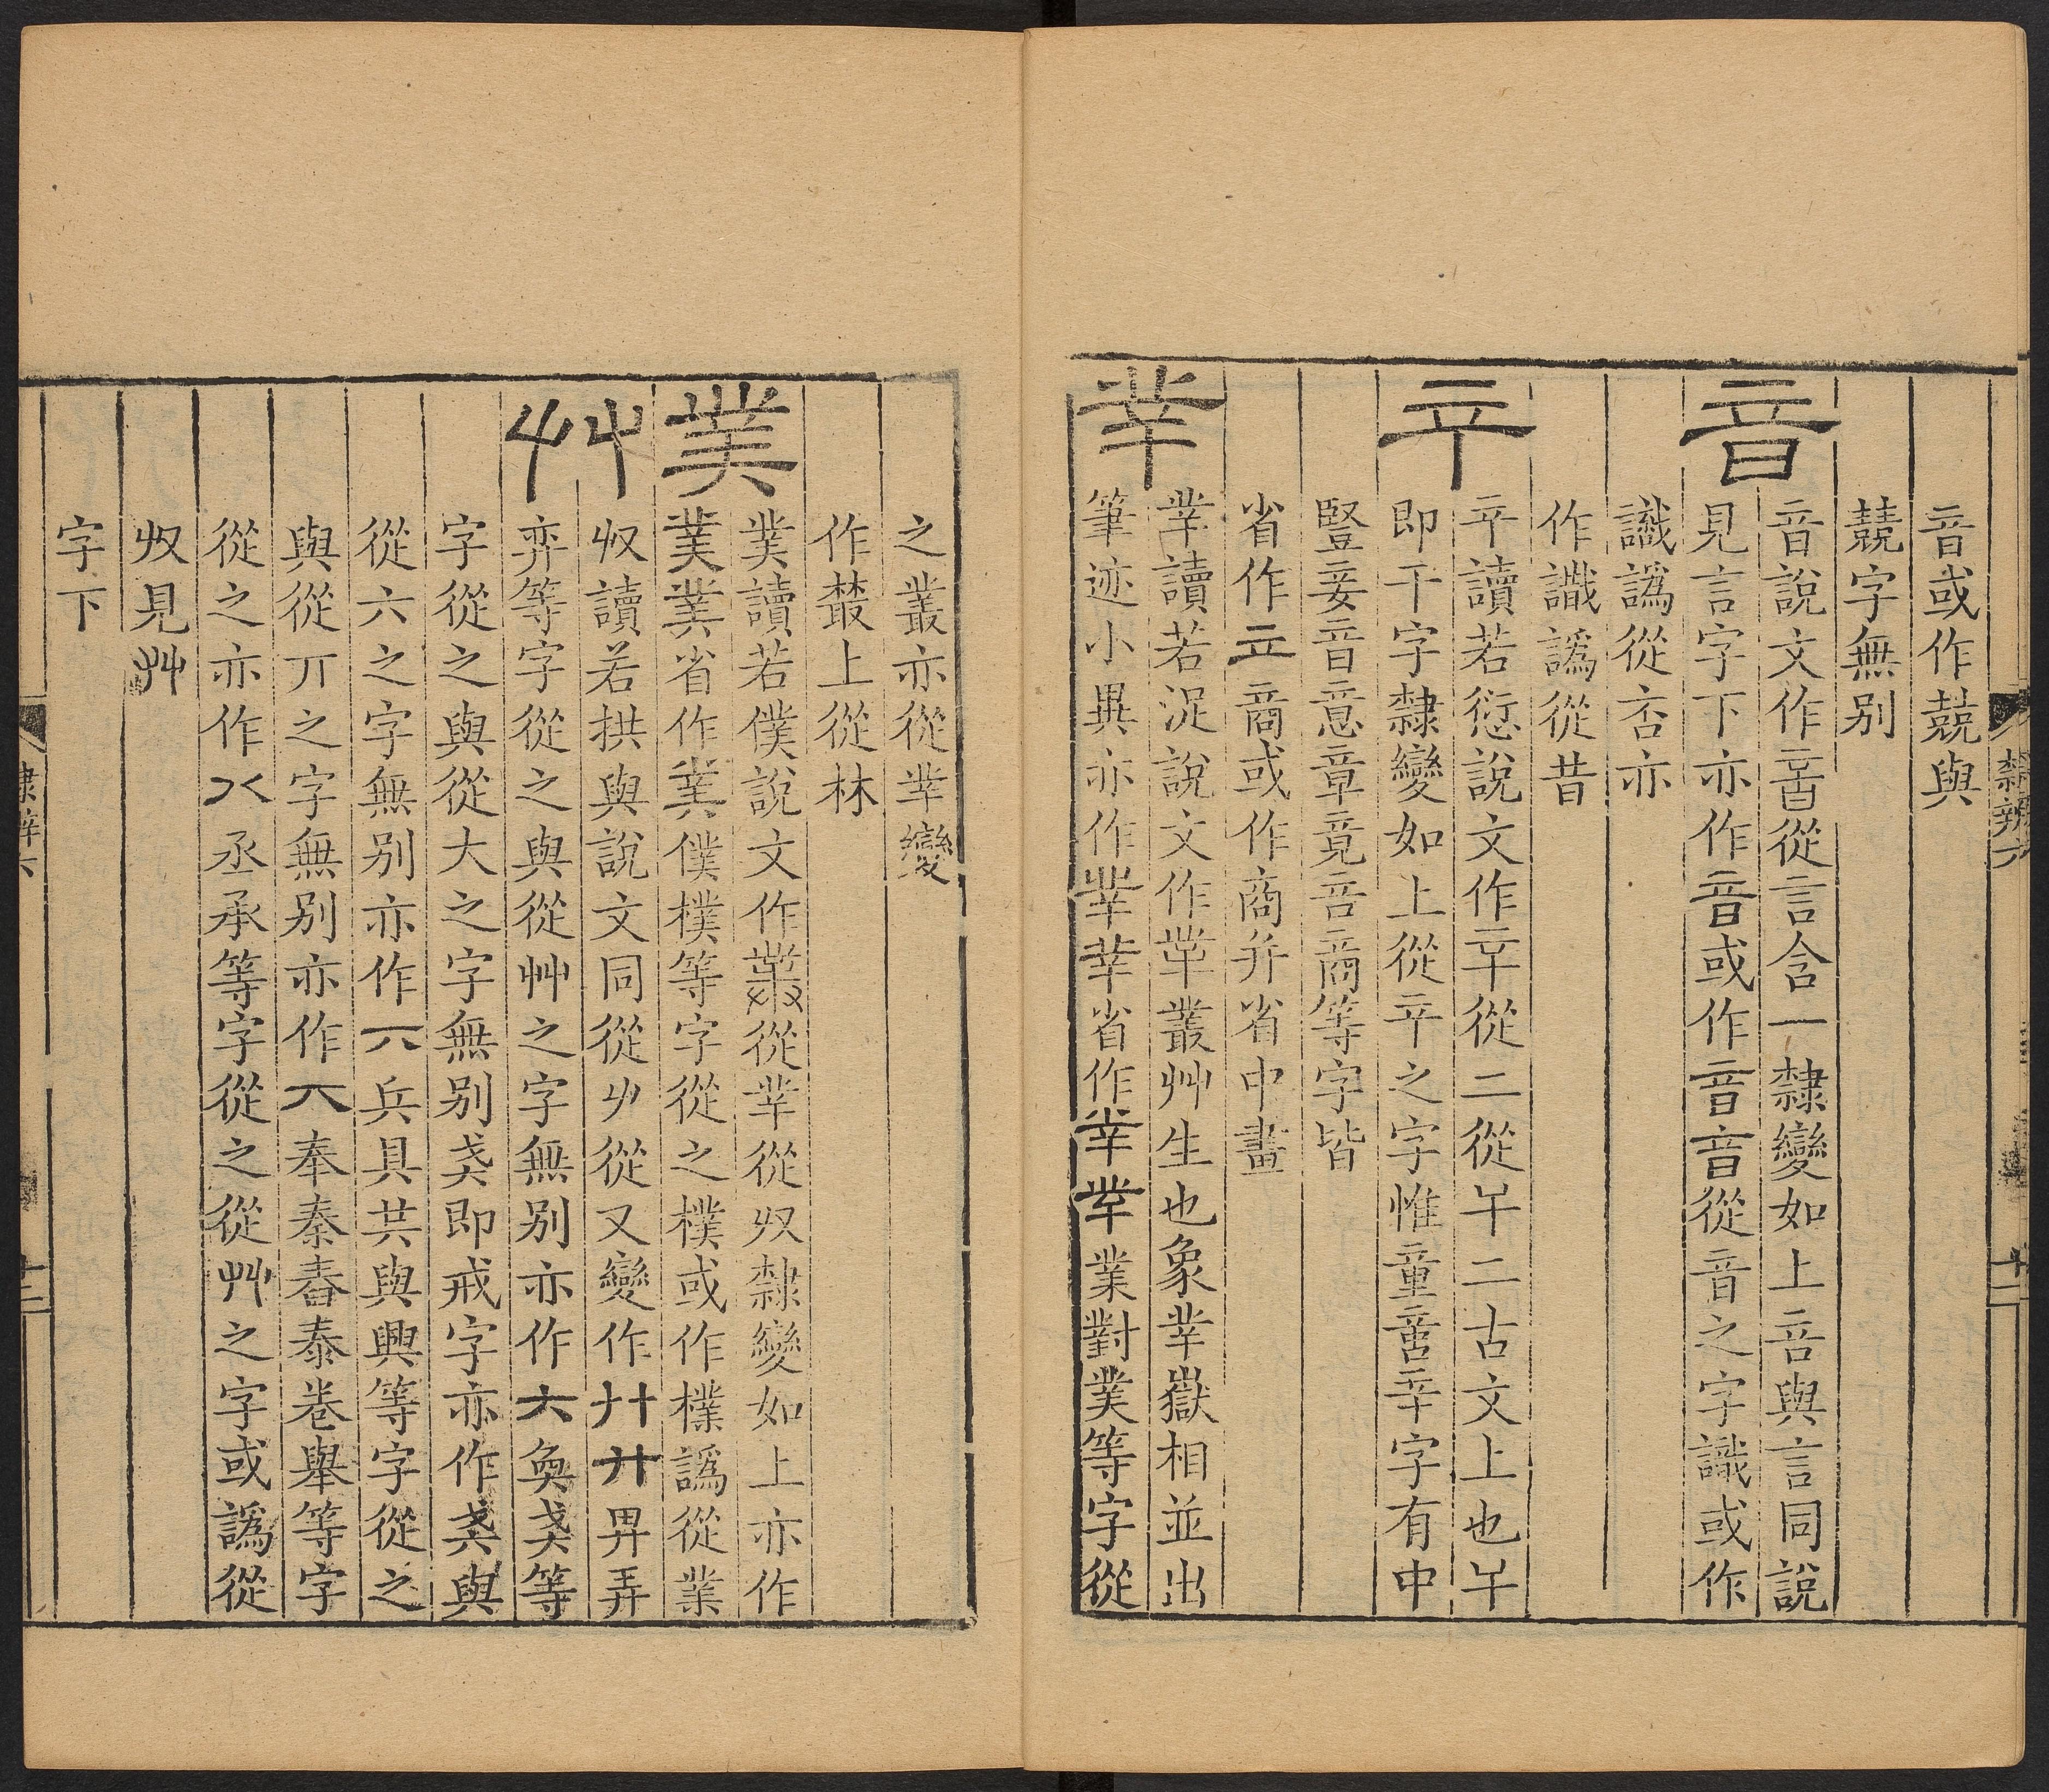 音或作兢與
兢字無別
音
音說文作𠶷從言含一隸變如上咅與言同說
見言字下亦作音或作音音從音之字識或作
譤譌從否亦
作譏譌從昔
䇂
䇂讀若愆說文作䇂從二從𢆉二古文上也𢆉
即干字隸變如上從䇂之字惟童啻辛字有中
豎妾音意章竟咅商等字皆
省作立商或作商并省中畫
丵
丵讀若浞說文作丵叢艸生也象丵嶽相並出
筆迹小異亦作丵丵省作丵丵業對菐等字從
之叢亦從丵變
作藂上從林
菐
菐讀若僕說文作菐從丵從収隸變如上亦作
菐菐省作菐僕樸等字從之樸或作檏譌從業
𠬞
収讀若拱與說文同從𠂇從又變作廾廾畀弄
弈等字從之與從艸之字無別亦作六奐戔等
字從之與從大之字無別戔即戒字亦作戔與
從六之字無別亦作六兵具共與興等字從之
與從丌之字無別亦作𠔀奉秦舂泰卷舉等字
從之亦作八丞承等字從之從艸之字或譌從
収見艸
字下
隸辨六
十二